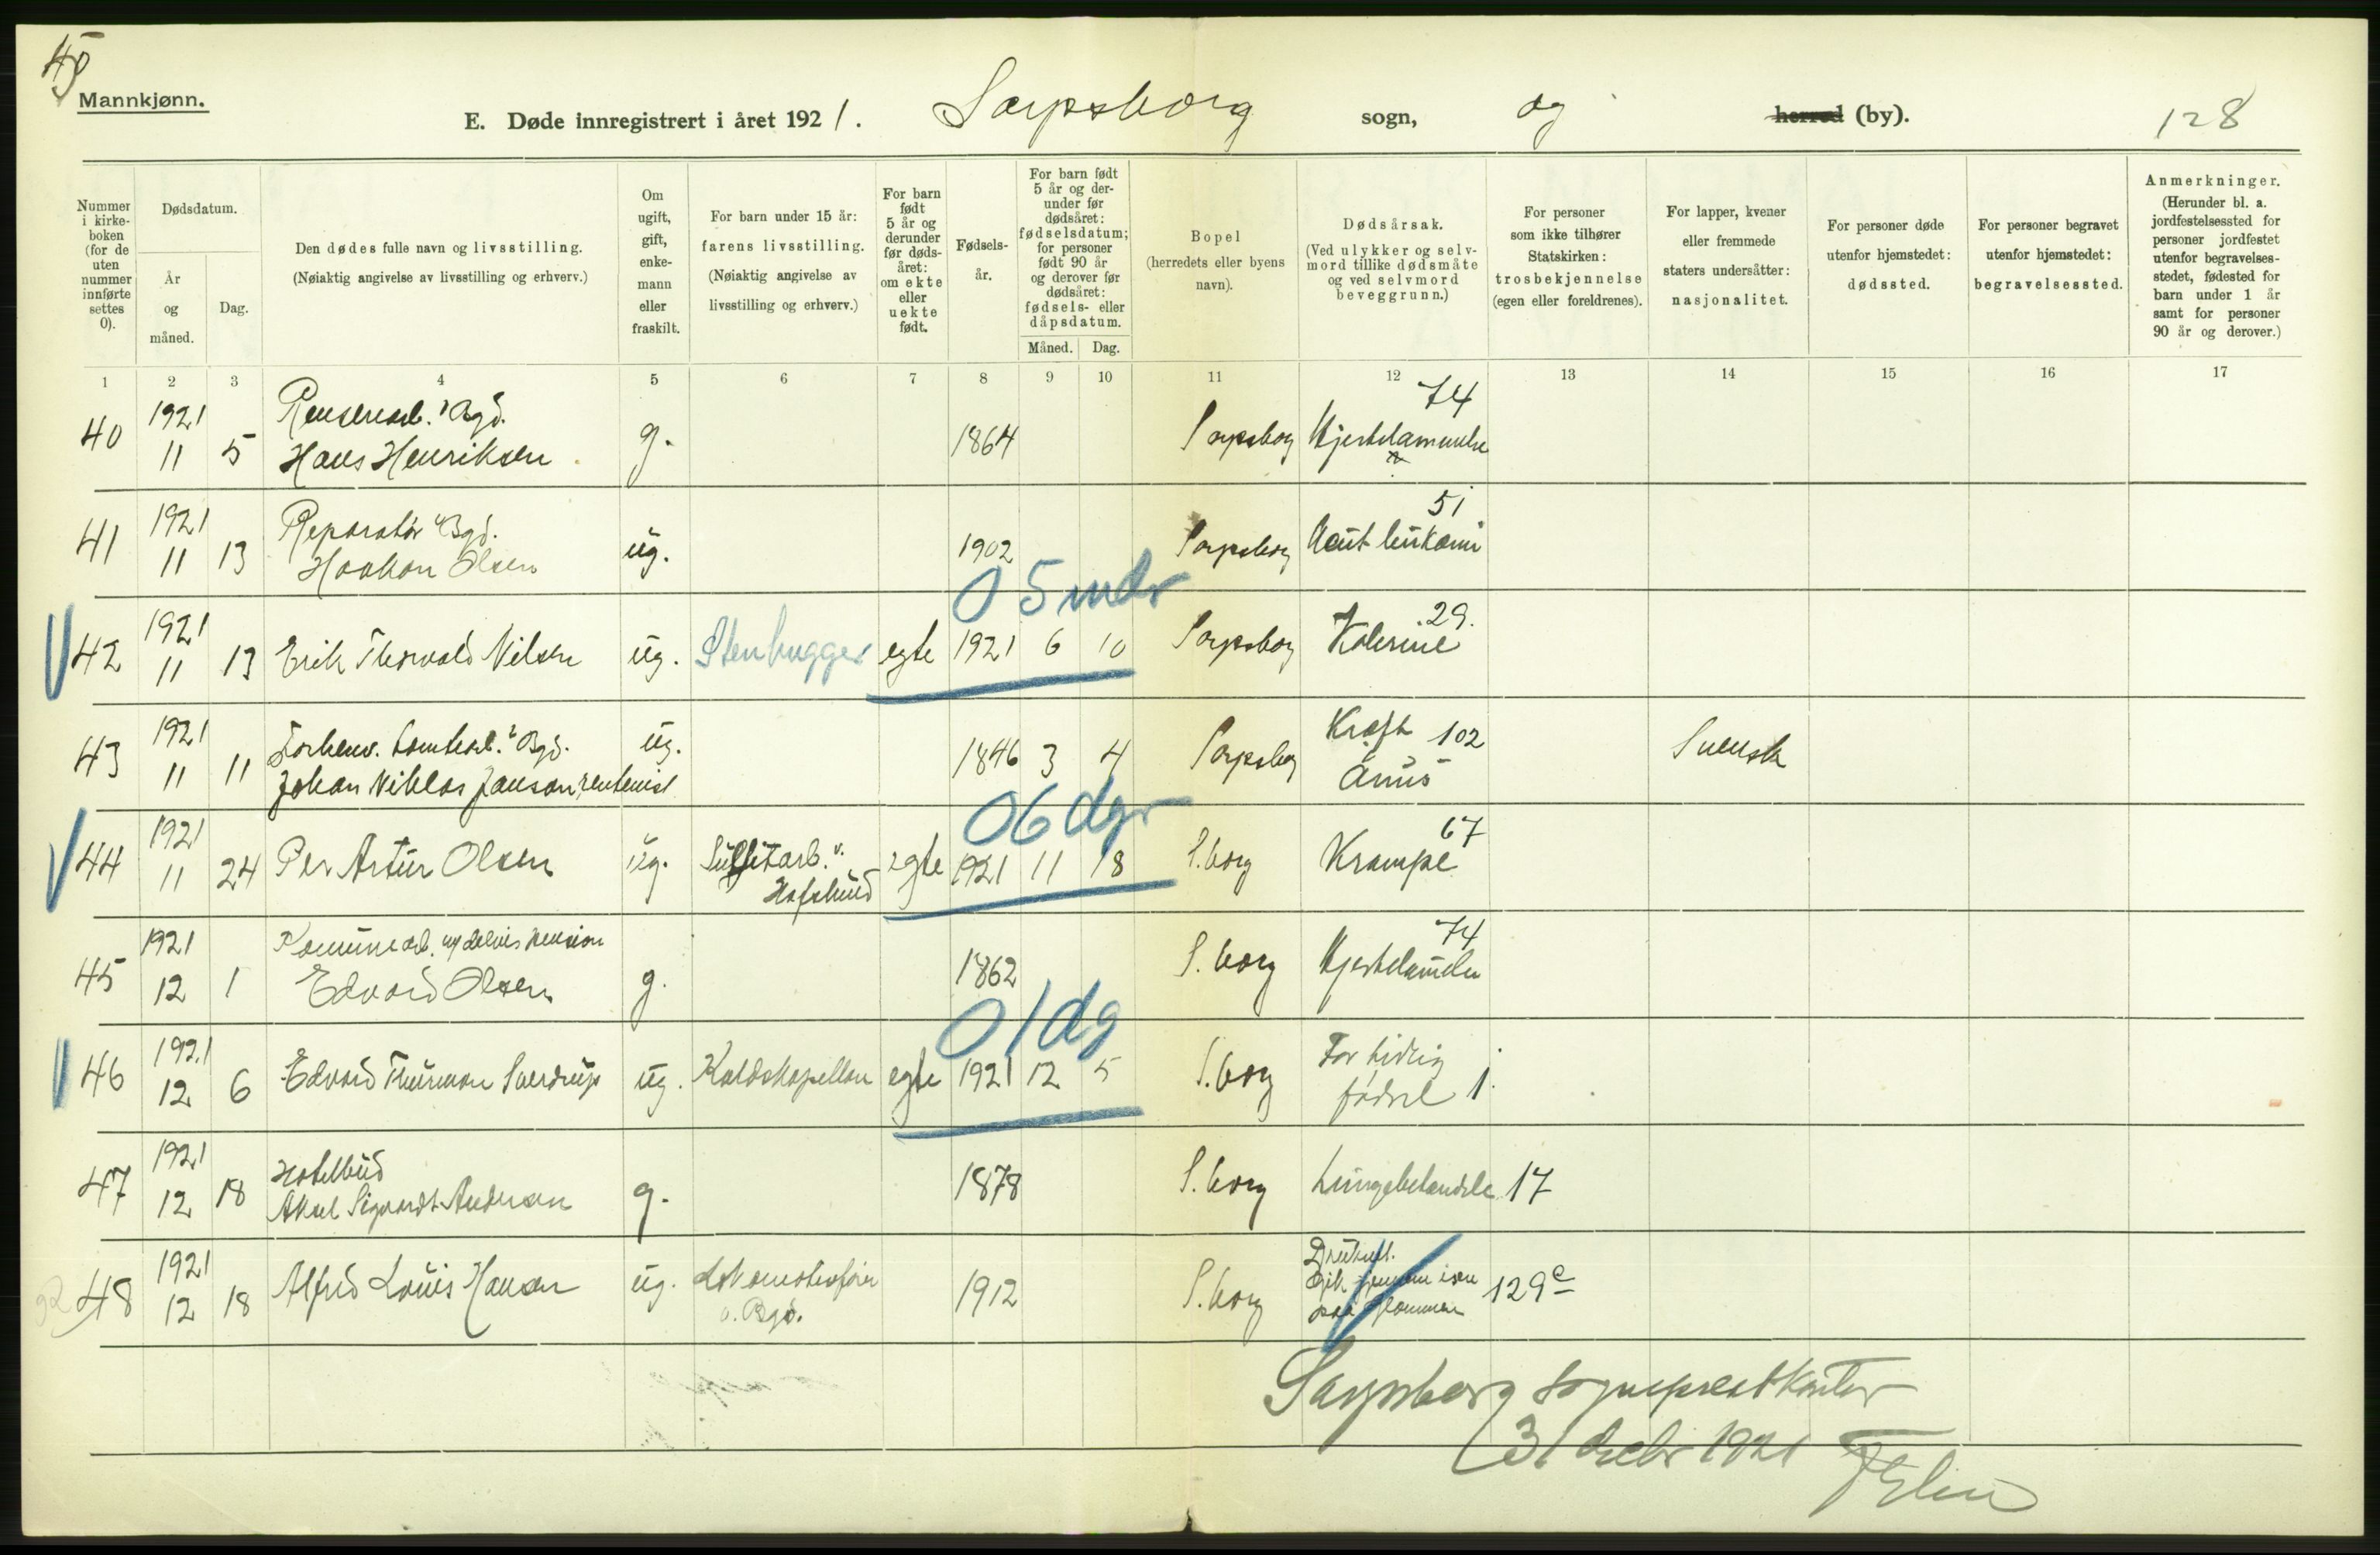 45
Mannkjønn.
E. Døde innregistrert i året 1921. Sarpsborg sogn, og herred (by). 128
Nummer i kirke-boken (for de uten nummer innførte settes 0).
Dødsdatum.
År og måned.
Dag.
Den dødes fulle navn og livsstilling.
(Nøiaktig angivelse av livsstilling og erhverv.)
Om ugift, gift, enke-mann eller fraskilt.
For barn under 15 år: farens livsstilling.
(Nøiaktig angivelse av livsstilling og erhverv.)
For barn født 5 år og derunder før døds-året: om ekte eller uekte født.
Fødsels-år.
For barn født 5 år og der-under før dødsåret: fødselsdatum; for personer født 90 år og derover før dødsåret: fødsels- eller dåpsdatum.
Måned. Dag.
Bopel (herredets eller byens navn).
Dødsårsak.
(Ved ulykker og selv-mord tillike dødsmåte og ved selvmord beveggrunn.)
For personer som ikke tilhører Statskirken: trosbekjennelse (egen eller foreldrenes).
For lapper, kvener eller fremmede staters undersåtter: nasjonalitet.
For personer døde utenfor hjemstedet: dødssted.
For personer begravet utenfor hjemstedet: begravelsessted.
Anmerkninger.
(Herunder bl. a. jordfestelsessted for personer jordfestet utenfor begravelses-stedet, fødested for barn under 1 år samt for personer 90 år og derover.)
1 2 3 4 5 6 7 8 9 10 11 12 13 14 15 16 17
40 1921 11 5 Bgd. Hans Henriksen g. 1864 Sarpsborg Hjertelammelse 74
41 1921 11 13 Reparatør Bgd. Haakon Olsen ug. 1902 Sarpsborg Acut leukæmi 51
0 5 mdr
42 1921 11 13 Erik Thorvald Nilsen ug. Stenhugger egte 1921 6 10 Sarpsborg Kolerine 29.
43 1921 11 11 Forhenv. Tomtearb. Bgd. Johan Niklas Janson rentenist ug. 1846 3 4 Sarpsborg Kræft 102 Anus Svensk
0 6 dgr
44 1921 11 24 Per Artur Olsen ug. Sulfitarb. v. Hafslund egte 1921 11 18 S.borg Krampe 67
45 1921 12 1 Edvard Olsen g. 1862 S.borg Hjertelammelse 74
0 1 dg
46 1921 12 6 Edvard Thurman Sverdrup ug. Kaldskapellan egte 1921 12 5 S.borg For tidlig fødsel 1
47 1921 12 18 Hotelbud Aksel Sigvardt Andersen g. 1878 S.borg Lungebetændelse 17
48 1921 12 18 Alfred Louis Hansen ug. Lokomotivfører v. Bgd. 1912 S.borg Druknet. Gik gjennem isen paa Glommen 129c
Sarpsborg sogneprestkontor
31 decbr 1921